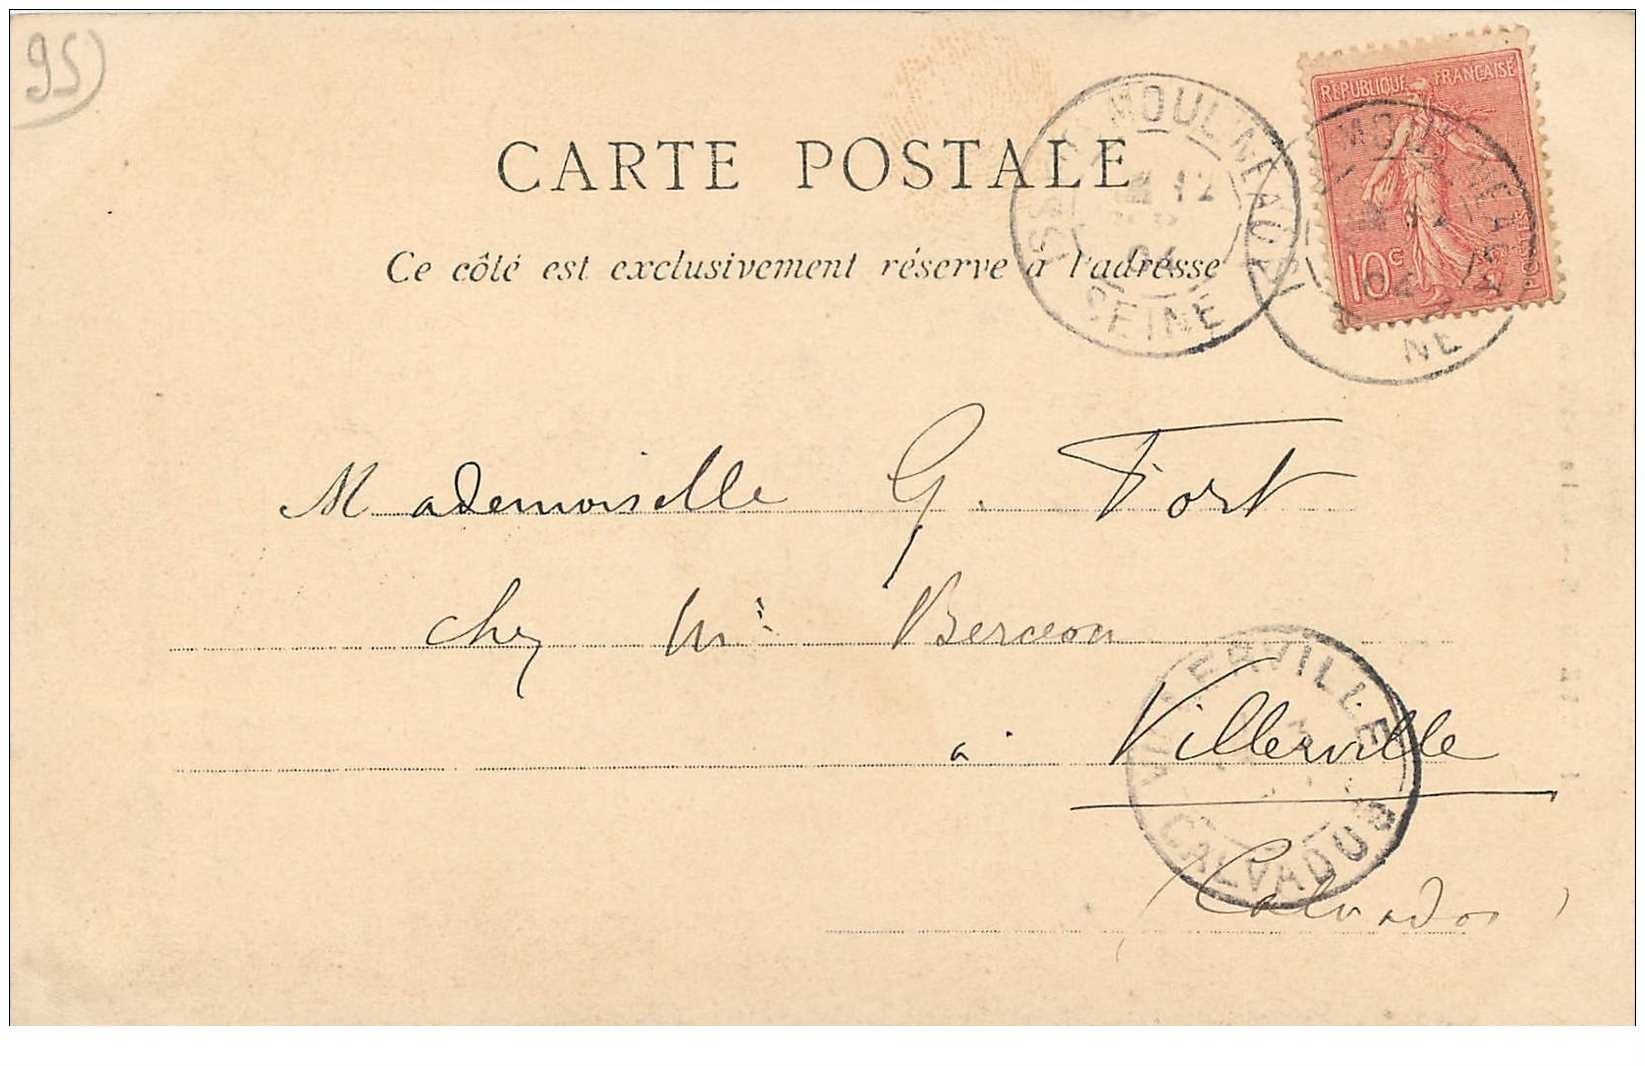 95
RÉPUBLIQUE FRANÇAISE
10c
POSTES
MOULINEAUX
12
04
SEINE
NE
CARTE POSTALE
Ce côté est exclusivement réservé à l'adresse
Mademoiselle G. Fort
chez Mr Berceon
à Villerville
(Calvados)
VILLERVILLE
CALVADOS